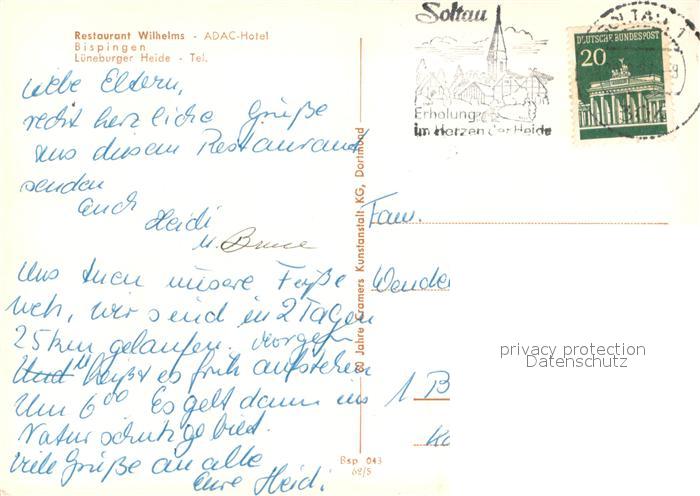 Restaurant Wilhelms - ADAC-Hotel
Bispingen
Lüneburger Heide - Tel.
Liebe Eltern,
recht herzliche Grüße
aus diesem Restaurant
senden
Euch
Heidi
u.
Uns tuen unsere Füße
weh, wir sind in 2 Tagen
25 km gelaufen. Morgen
Und heißt es früh aufstehen
Um 6⁰⁰ Es geht dann ins
Naturschutzgebiet.
Viele Grüße an alle
Eure Heidi.
Bsp 043
62/5
80 Jahre Cramers Kunstanstalt KG, Dortmund
Soltau
Erholung
im Herzen der Heide
DEUTSCHE BUNDESPOST
20
SOLTAU 1
Fam.
1 B
privacy protection
Datenschutz